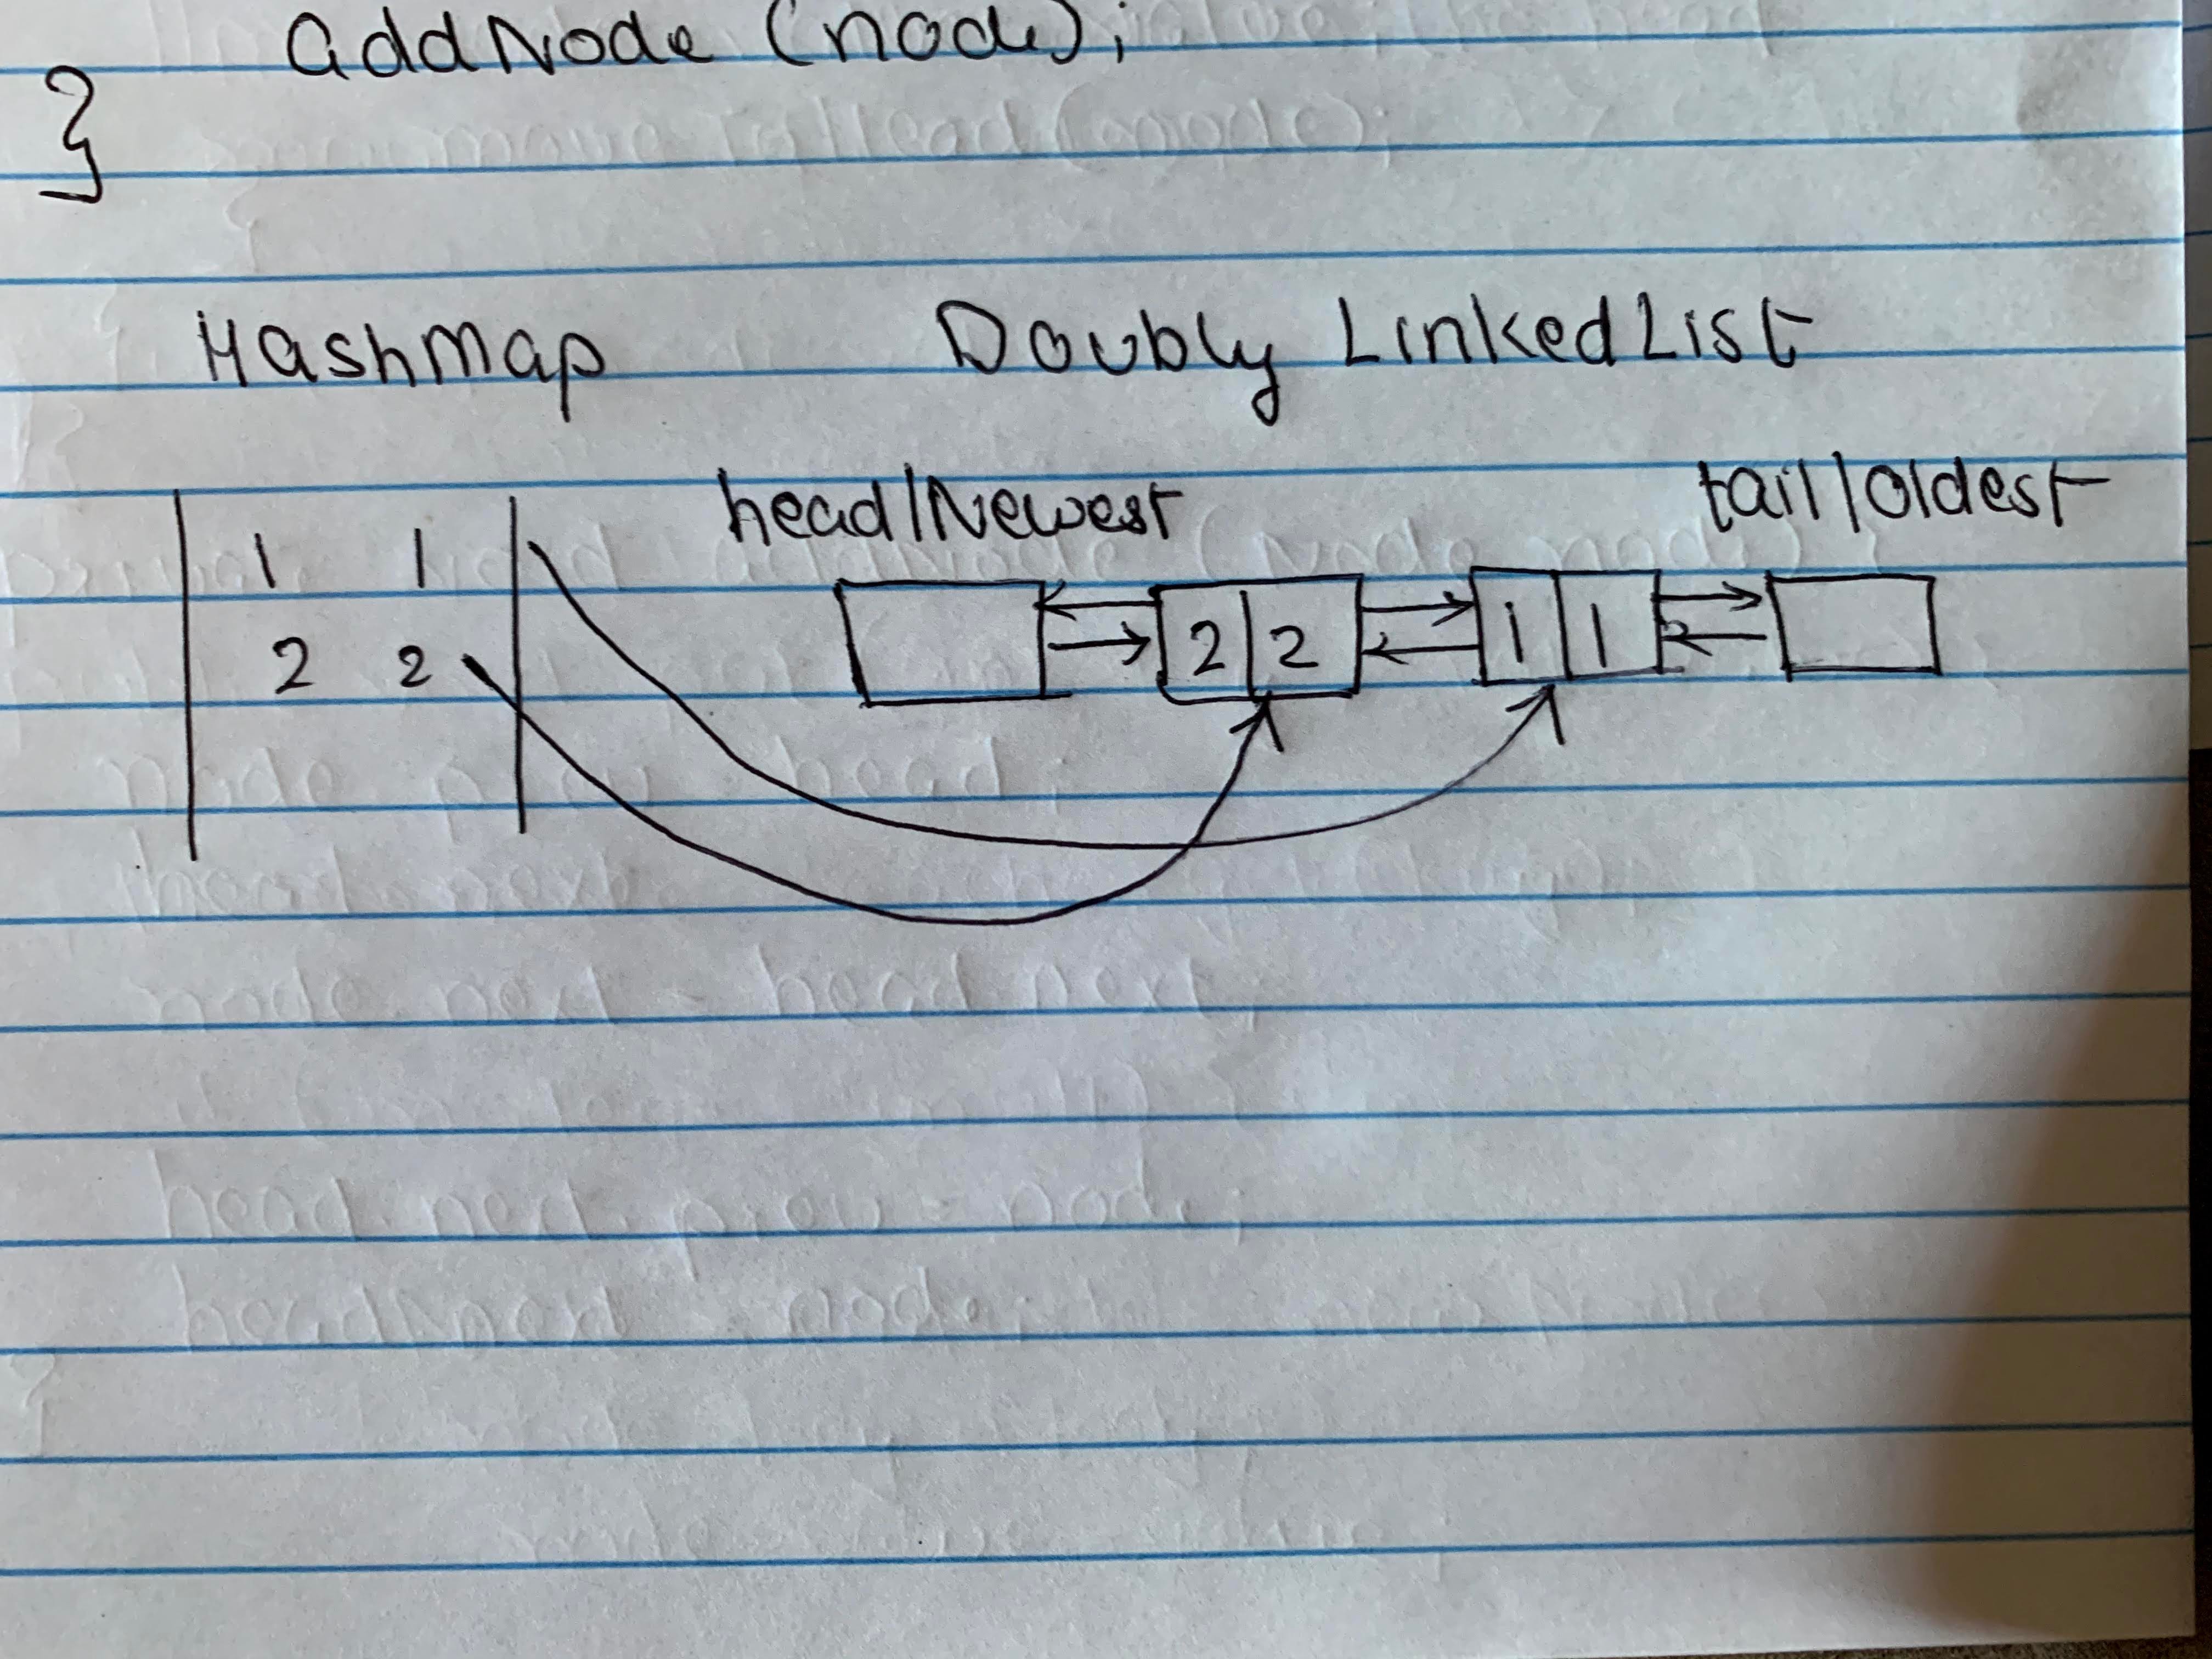 addNode (node);
}
HashMap Doubly LinkedList
head/Newest tail/Oldest
1 1
2 2 2|2 1|1